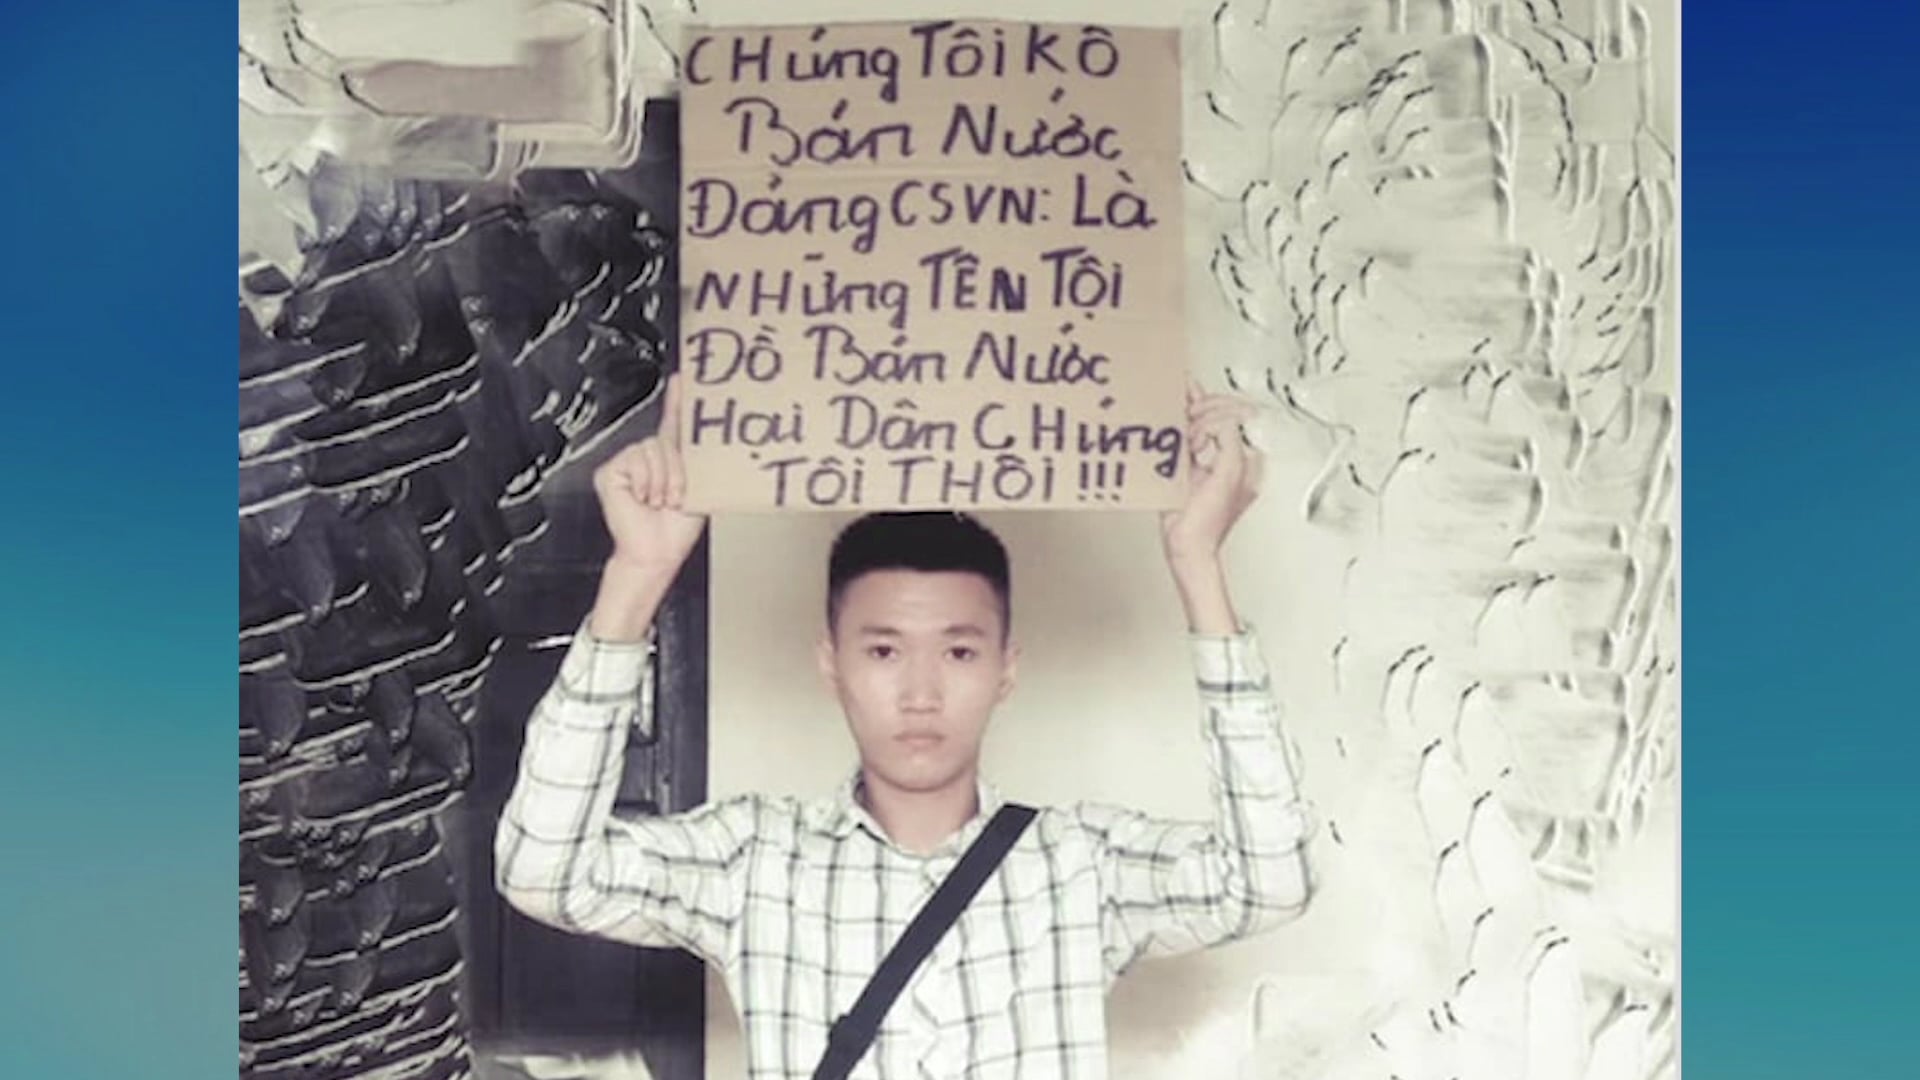 CHúng Tôi Kô
Bán Nước
Đảng CSVN: Là
NHững TÊN Tội
Đồ Bán Nước
Hại Dân CHúng
TÔi THÔi !!!